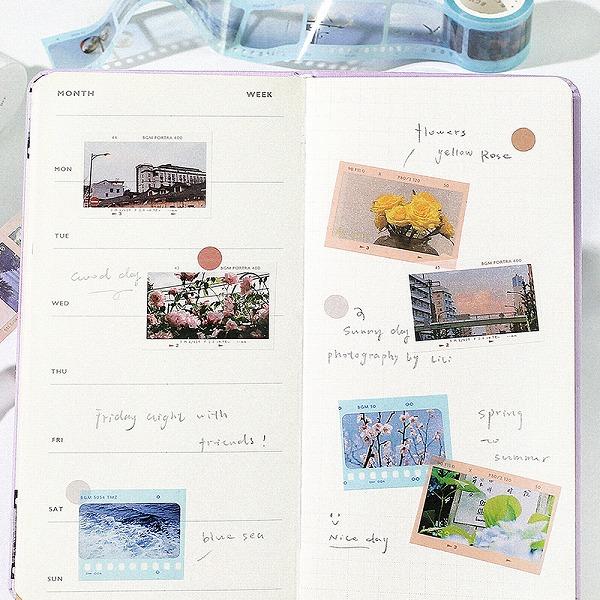 MONTH
WEEK
MON
44 BGM PORTRA 400
TUE
Good day
43 BGM PORTRA 400
WED
2
THU
Friday night with
friends!
FRI
BGM 5054 TMZ
SAT
blue sea
SUN
flowers
yellow Rose
X 50
3
45 BGM PORTRA 400
2
Sunny day
photography by Lili
BGM 50
spring
to
summer
Nice day
3